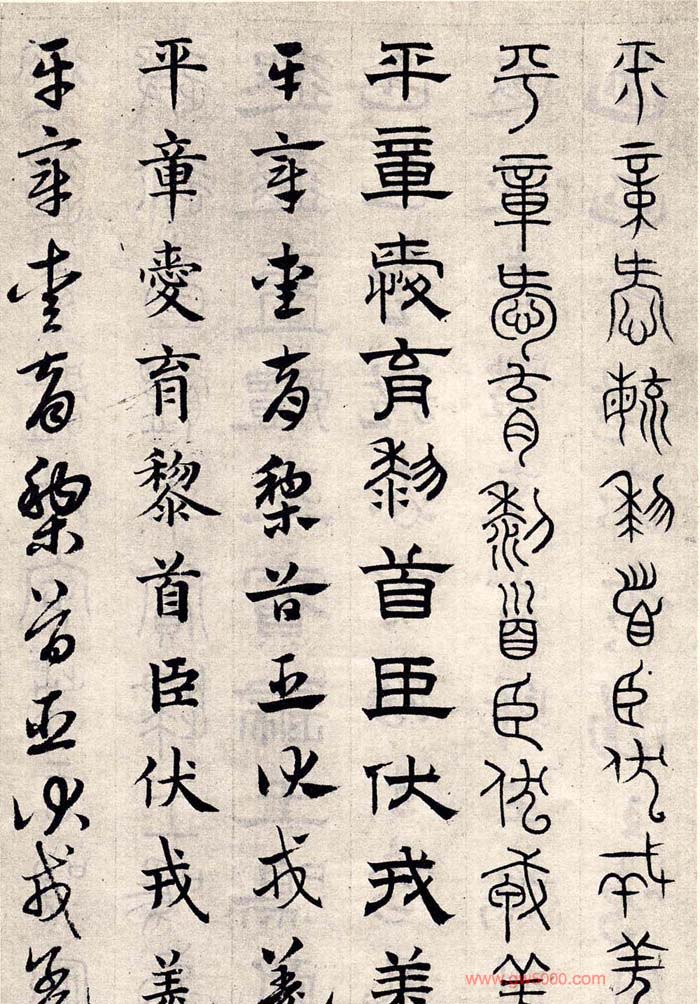 平章愛育黎首臣伏戎羌
平章愛育黎首臣伏戎羌
平章愛育黎首臣伏戎羌
平章愛育黎首臣伏戎羌
平章愛育黎首臣伏戎羌
平章愛育黎首臣伏戎羌
www.gw5000.com